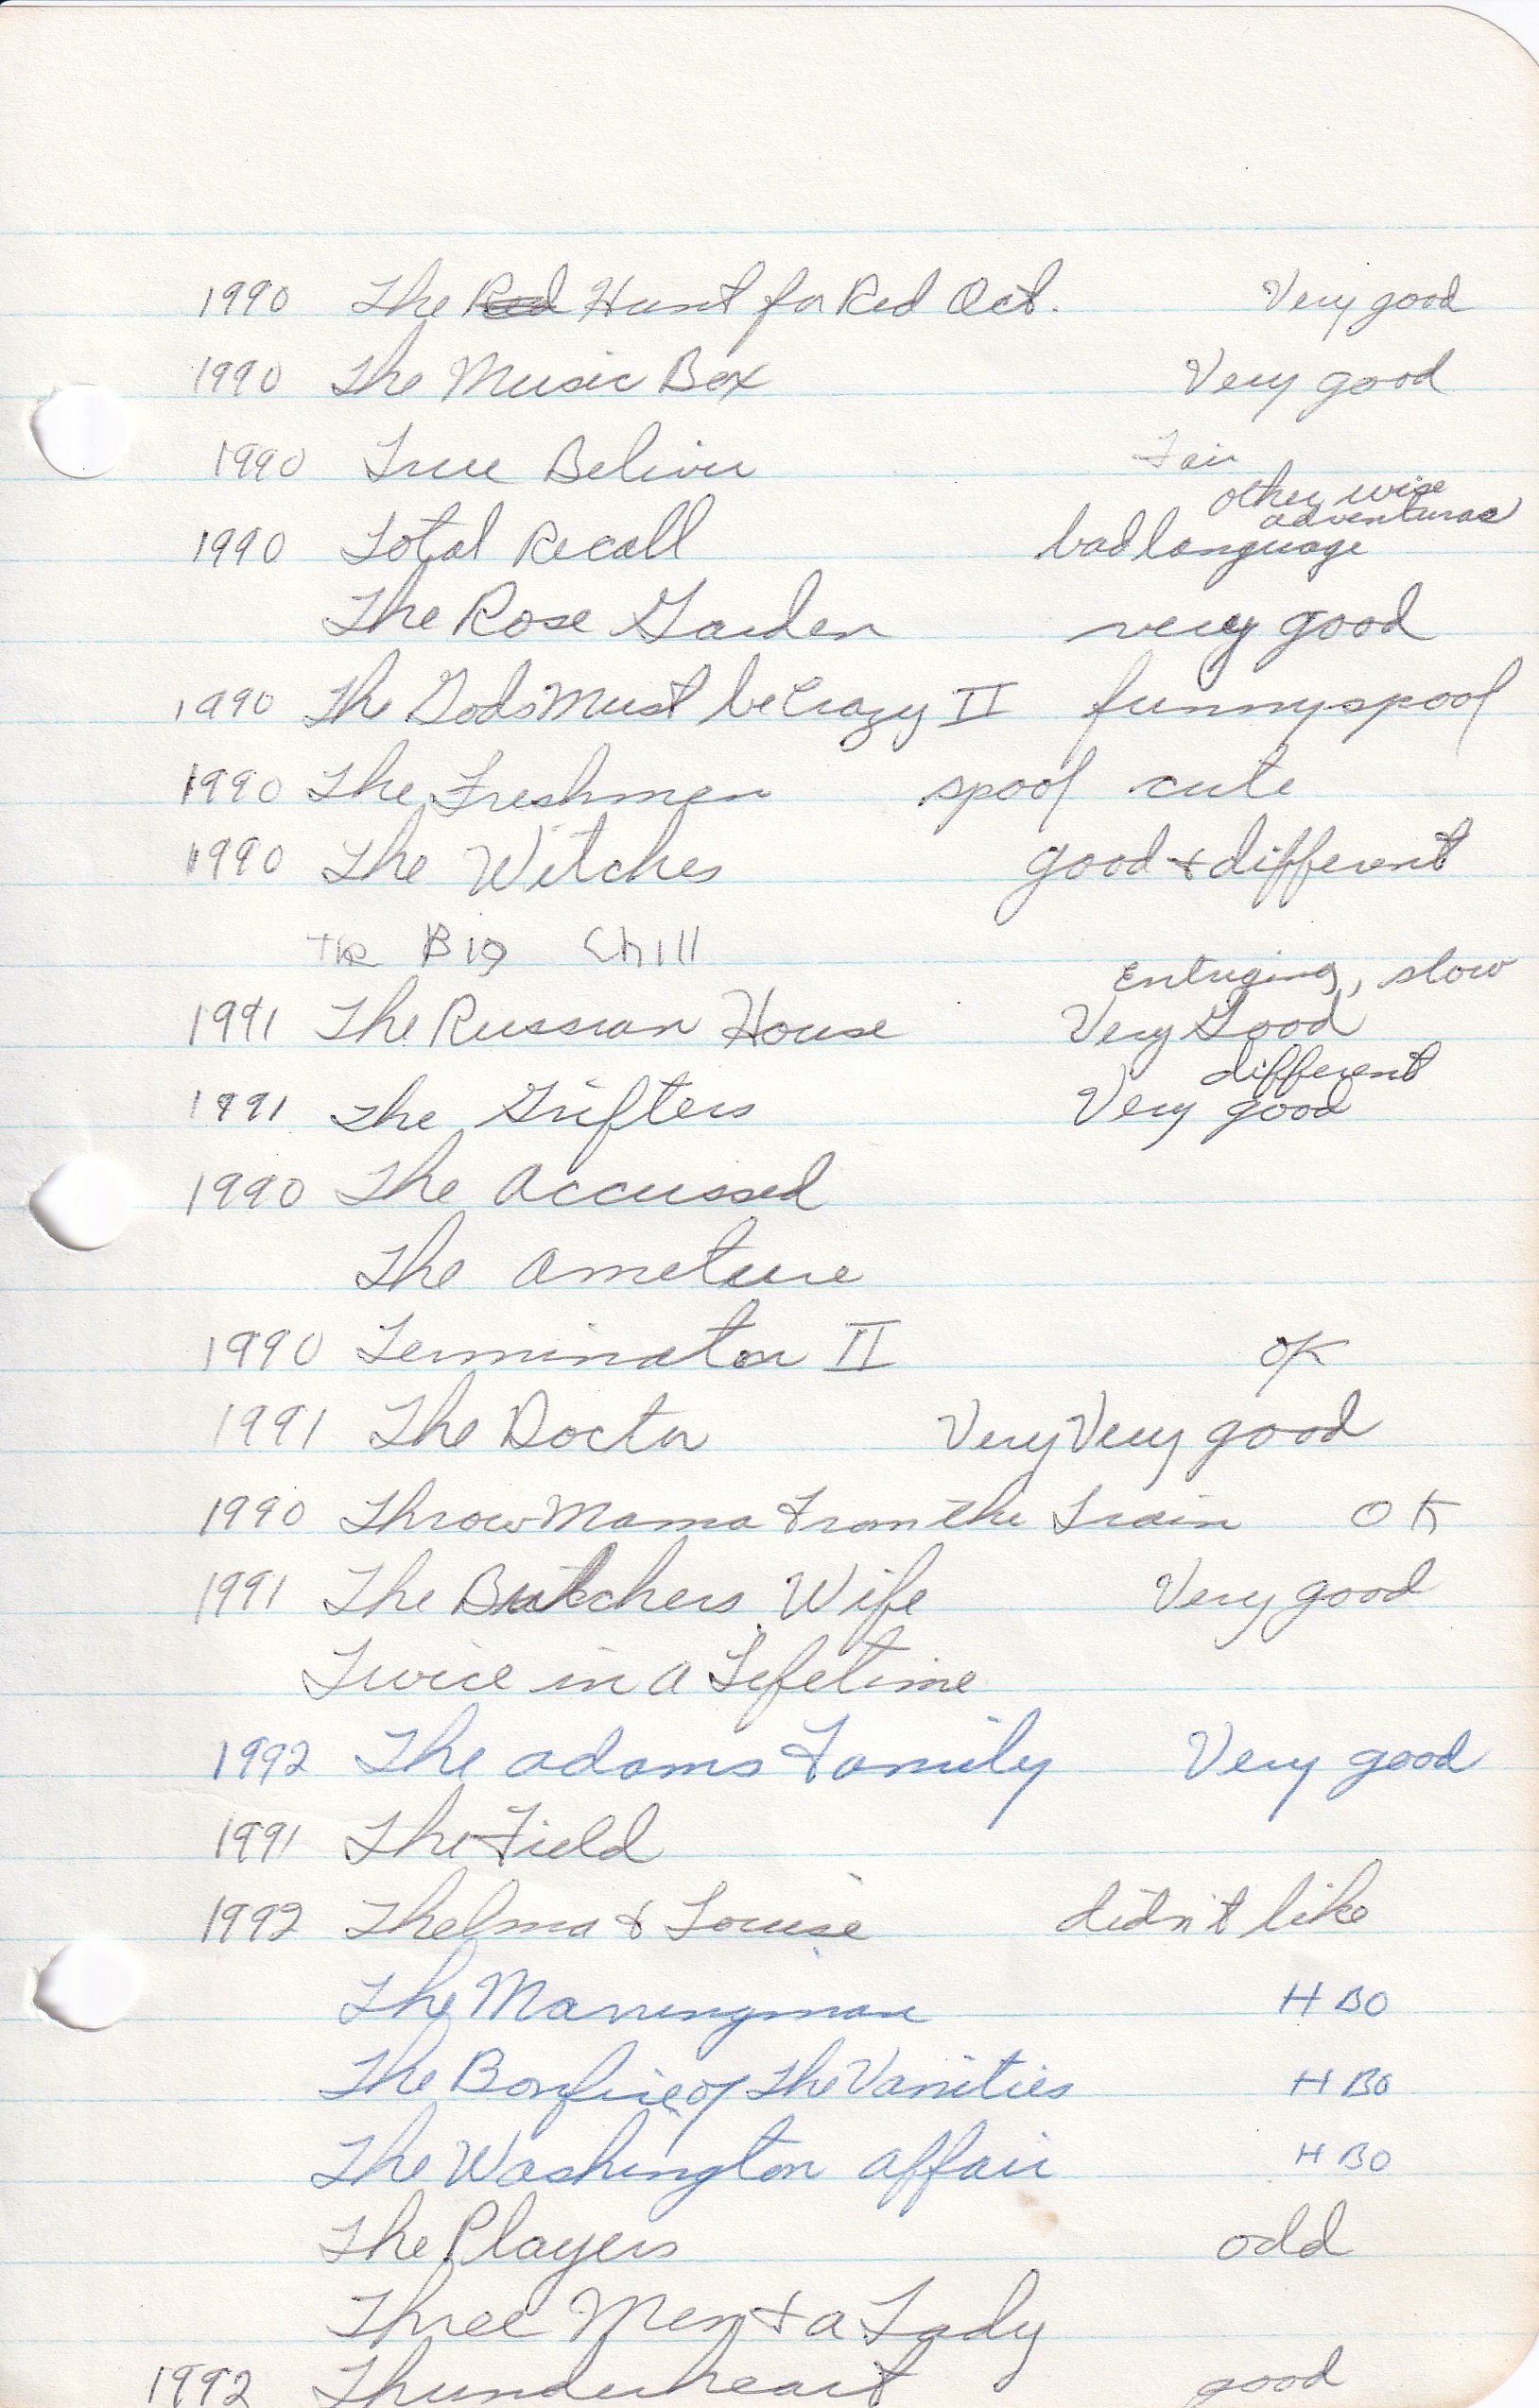 1990 The Red Hunt for Red Oct. Very good
1990 The Music Box Very good
1990 True Beliver Fair
other wise
adventuras
1990 Total Recall bad language
The Rose Garden very good
1990 The Gods Must be Crazy II funny spoof
1990 The Freshman spoof cute
1990 The Witches good & different
The Big Chill
Entruging, slow
1991 The Russian House Very Good
different
1991 The Grifters Very good
1990 The Accussed
The Ameture
1990 Terminator II OK
1991 The Doctor Very Very good
1990 Throw Mama From the Train OK
1991 The Butchers Wife Very good
Twice in a Lifetime
1992 The Adams Family Very good
1991 The Field
1992 Thelma & Louise didn't like
The Marryingman HBO
The Bonfire of the Vanities HBO
The Washington Affair HBO
The Players odd
Three Men & a Lady
1992 Thunderheart good